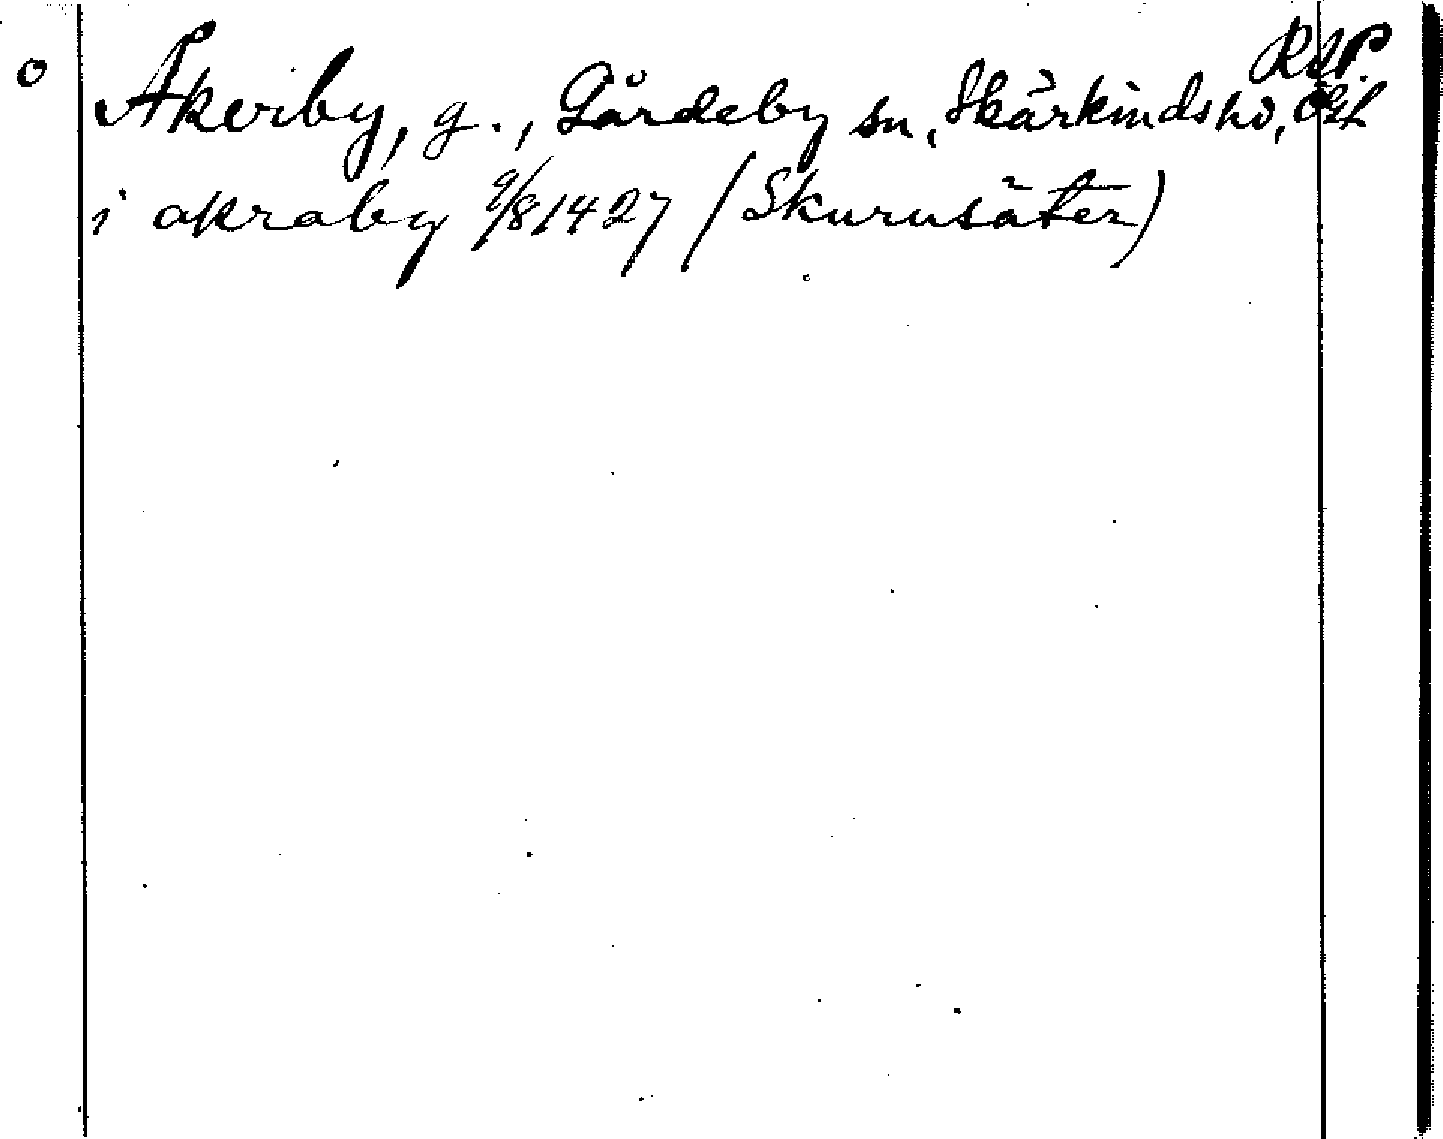 RAP.
o Åkerby, g., Gårdeby sn, Skärkinds hd, Ögl
i akraby 9/8 1427 (Skurusäter)